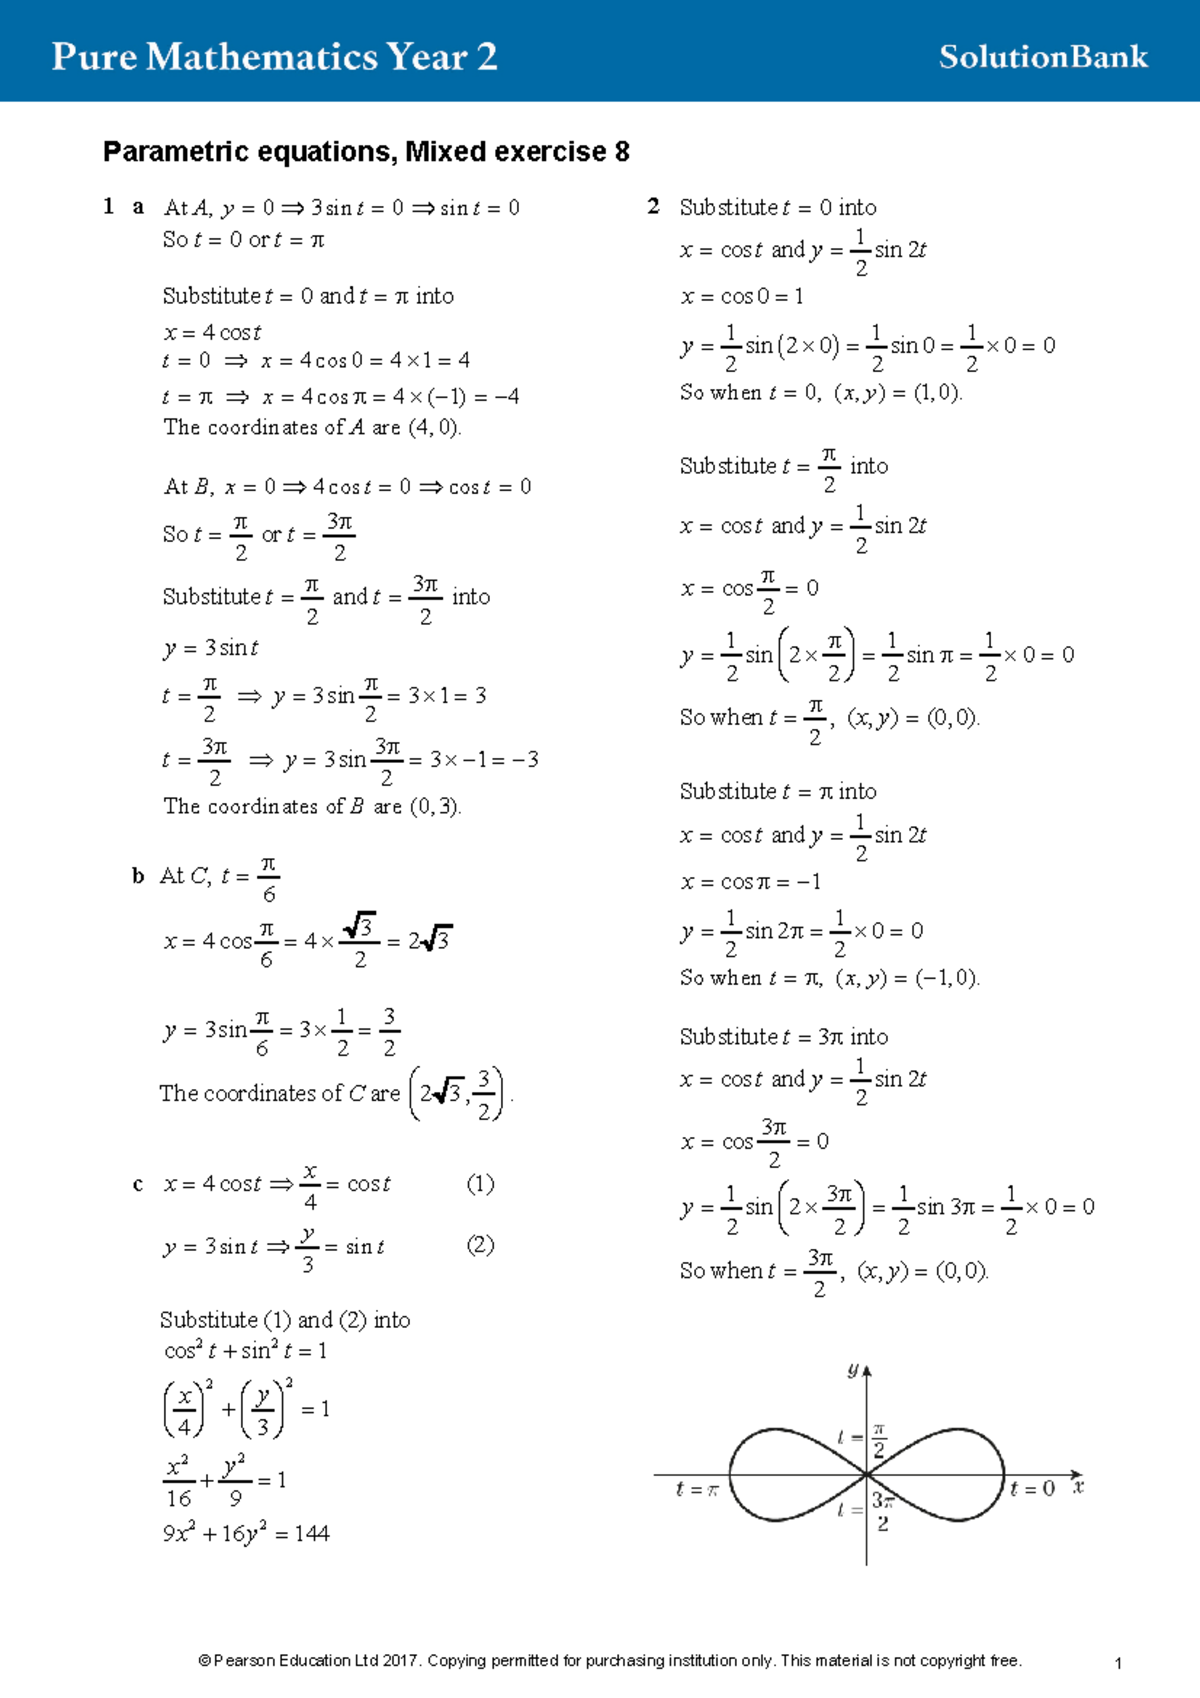 Pure Mathematics Year 2
SolutionBank
Parametric equations, Mixed exercise 8
1 a At A, y = 0 ⇒ 3 sin t = 0 ⇒ sin t = 0
So t = 0 or t = π
Substitute t = 0 and t = π into
x = 4 cos t
t = 0 ⇒ x = 4 cos 0 = 4 × 1 = 4
t = π ⇒ x = 4 cos π = 4 × (−1) = −4
The coordinates of A are (4, 0).
At B, x = 0 ⇒ 4 cos t = 0 ⇒ cos t = 0
So t = π/2 or t = 3π/2
Substitute t = π/2 and t = 3π/2 into
y = 3 sin t
t = π/2 ⇒ y = 3 sin π/2 = 3 × 1 = 3
t = 3π/2 ⇒ y = 3 sin 3π/2 = 3 × −1 = −3
The coordinates of B are (0, 3).
b At C, t = π/6
x = 4 cos π/6 = 4 × √3/2 = 2√3
y = 3 sin π/6 = 3 × 1/2 = 3/2
The coordinates of C are (2√3, 3/2).
c x = 4 cos t ⇒ x/4 = cos t (1)
y = 3 sin t ⇒ y/3 = sin t (2)
Substitute (1) and (2) into
cos² t + sin² t = 1
(x/4)² + (y/3)² = 1
x²/16 + y²/9 = 1
9x² + 16y² = 144
2 Substitute t = 0 into
x = cos t and y = 1/2 sin 2t
x = cos 0 = 1
y = 1/2 sin (2 × 0) = 1/2 sin 0 = 1/2 × 0 = 0
So when t = 0, (x, y) = (1, 0).
Substitute t = π/2 into
x = cos t and y = 1/2 sin 2t
x = cos π/2 = 0
y = 1/2 sin (2 × π/2) = 1/2 sin π = 1/2 × 0 = 0
So when t = π/2, (x, y) = (0, 0).
Substitute t = π into
x = cos t and y = 1/2 sin 2t
x = cos π = −1
y = 1/2 sin 2π = 1/2 × 0 = 0
So when t = π, (x, y) = (−1, 0).
Substitute t = 3π into
x = cos t and y = 1/2 sin 2t
x = cos 3π/2 = 0
y = 1/2 sin (2 × 3π/2) = 1/2 sin 3π = 1/2 × 0 = 0
So when t = 3π/2, (x, y) = (0, 0).
y
t = π/2
t = π
t = 0 x
t = 3π/2
© Pearson Education Ltd 2017. Copying permitted for purchasing institution only. This material is not copyright free.
1